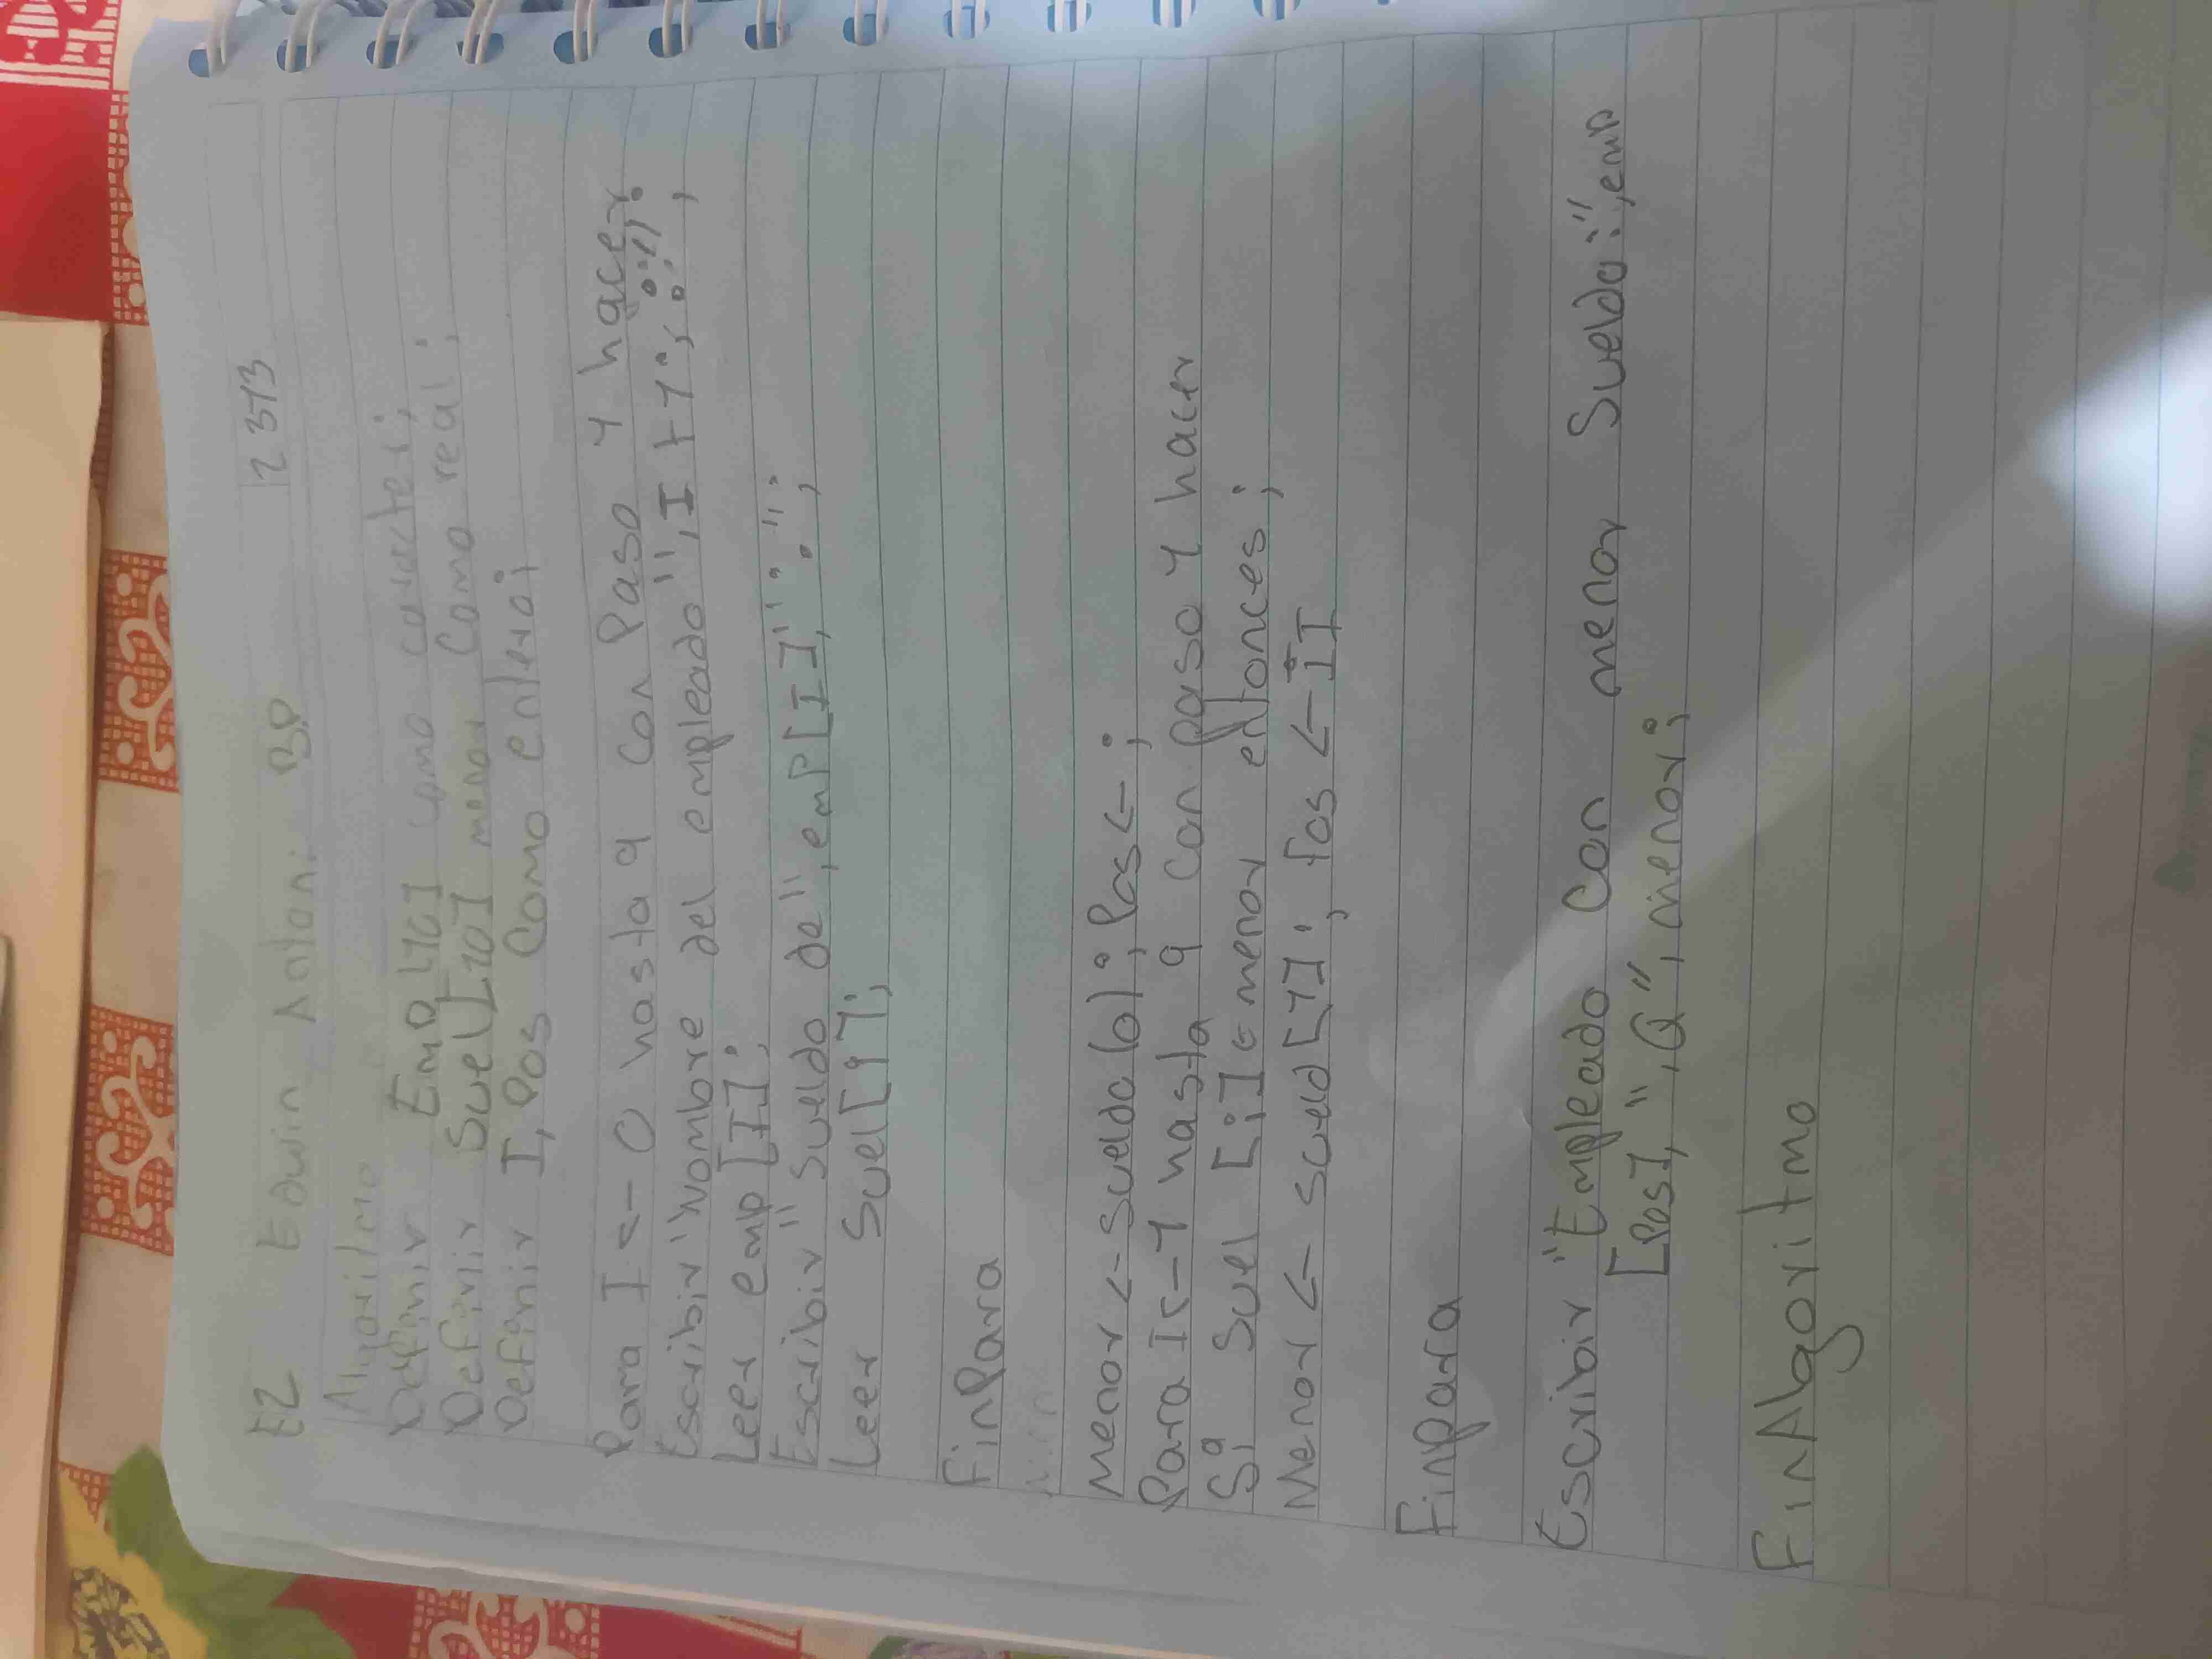 E2 Edwin Antoni B.P 2373
Algoritmo
Definir Emp [10] como caracter;
Definir Suel[10] menor Como real;
Definir I, Pos Como entero;
Para I <- 0 hasta 9 Con Paso 1 hacer
Escribir "Nombre del empleado", I+1,":";
Leer emp [I];
Escribir "Sueldo de", emp[I]":";
Leer Suel[i];
FinPara
Menor <- Sueldo(0); Pos <- ;
Para I <- 1 hasta 9 Con paso 1 hacer
Si Suel [i] < menor entonces;
Menor <- sueld[1]; Pos <- I
Finpara
Escribir "Empleado Con menor Sueldo:",emp
[Pos], " ,Q", menor;
FinAlgoritmo